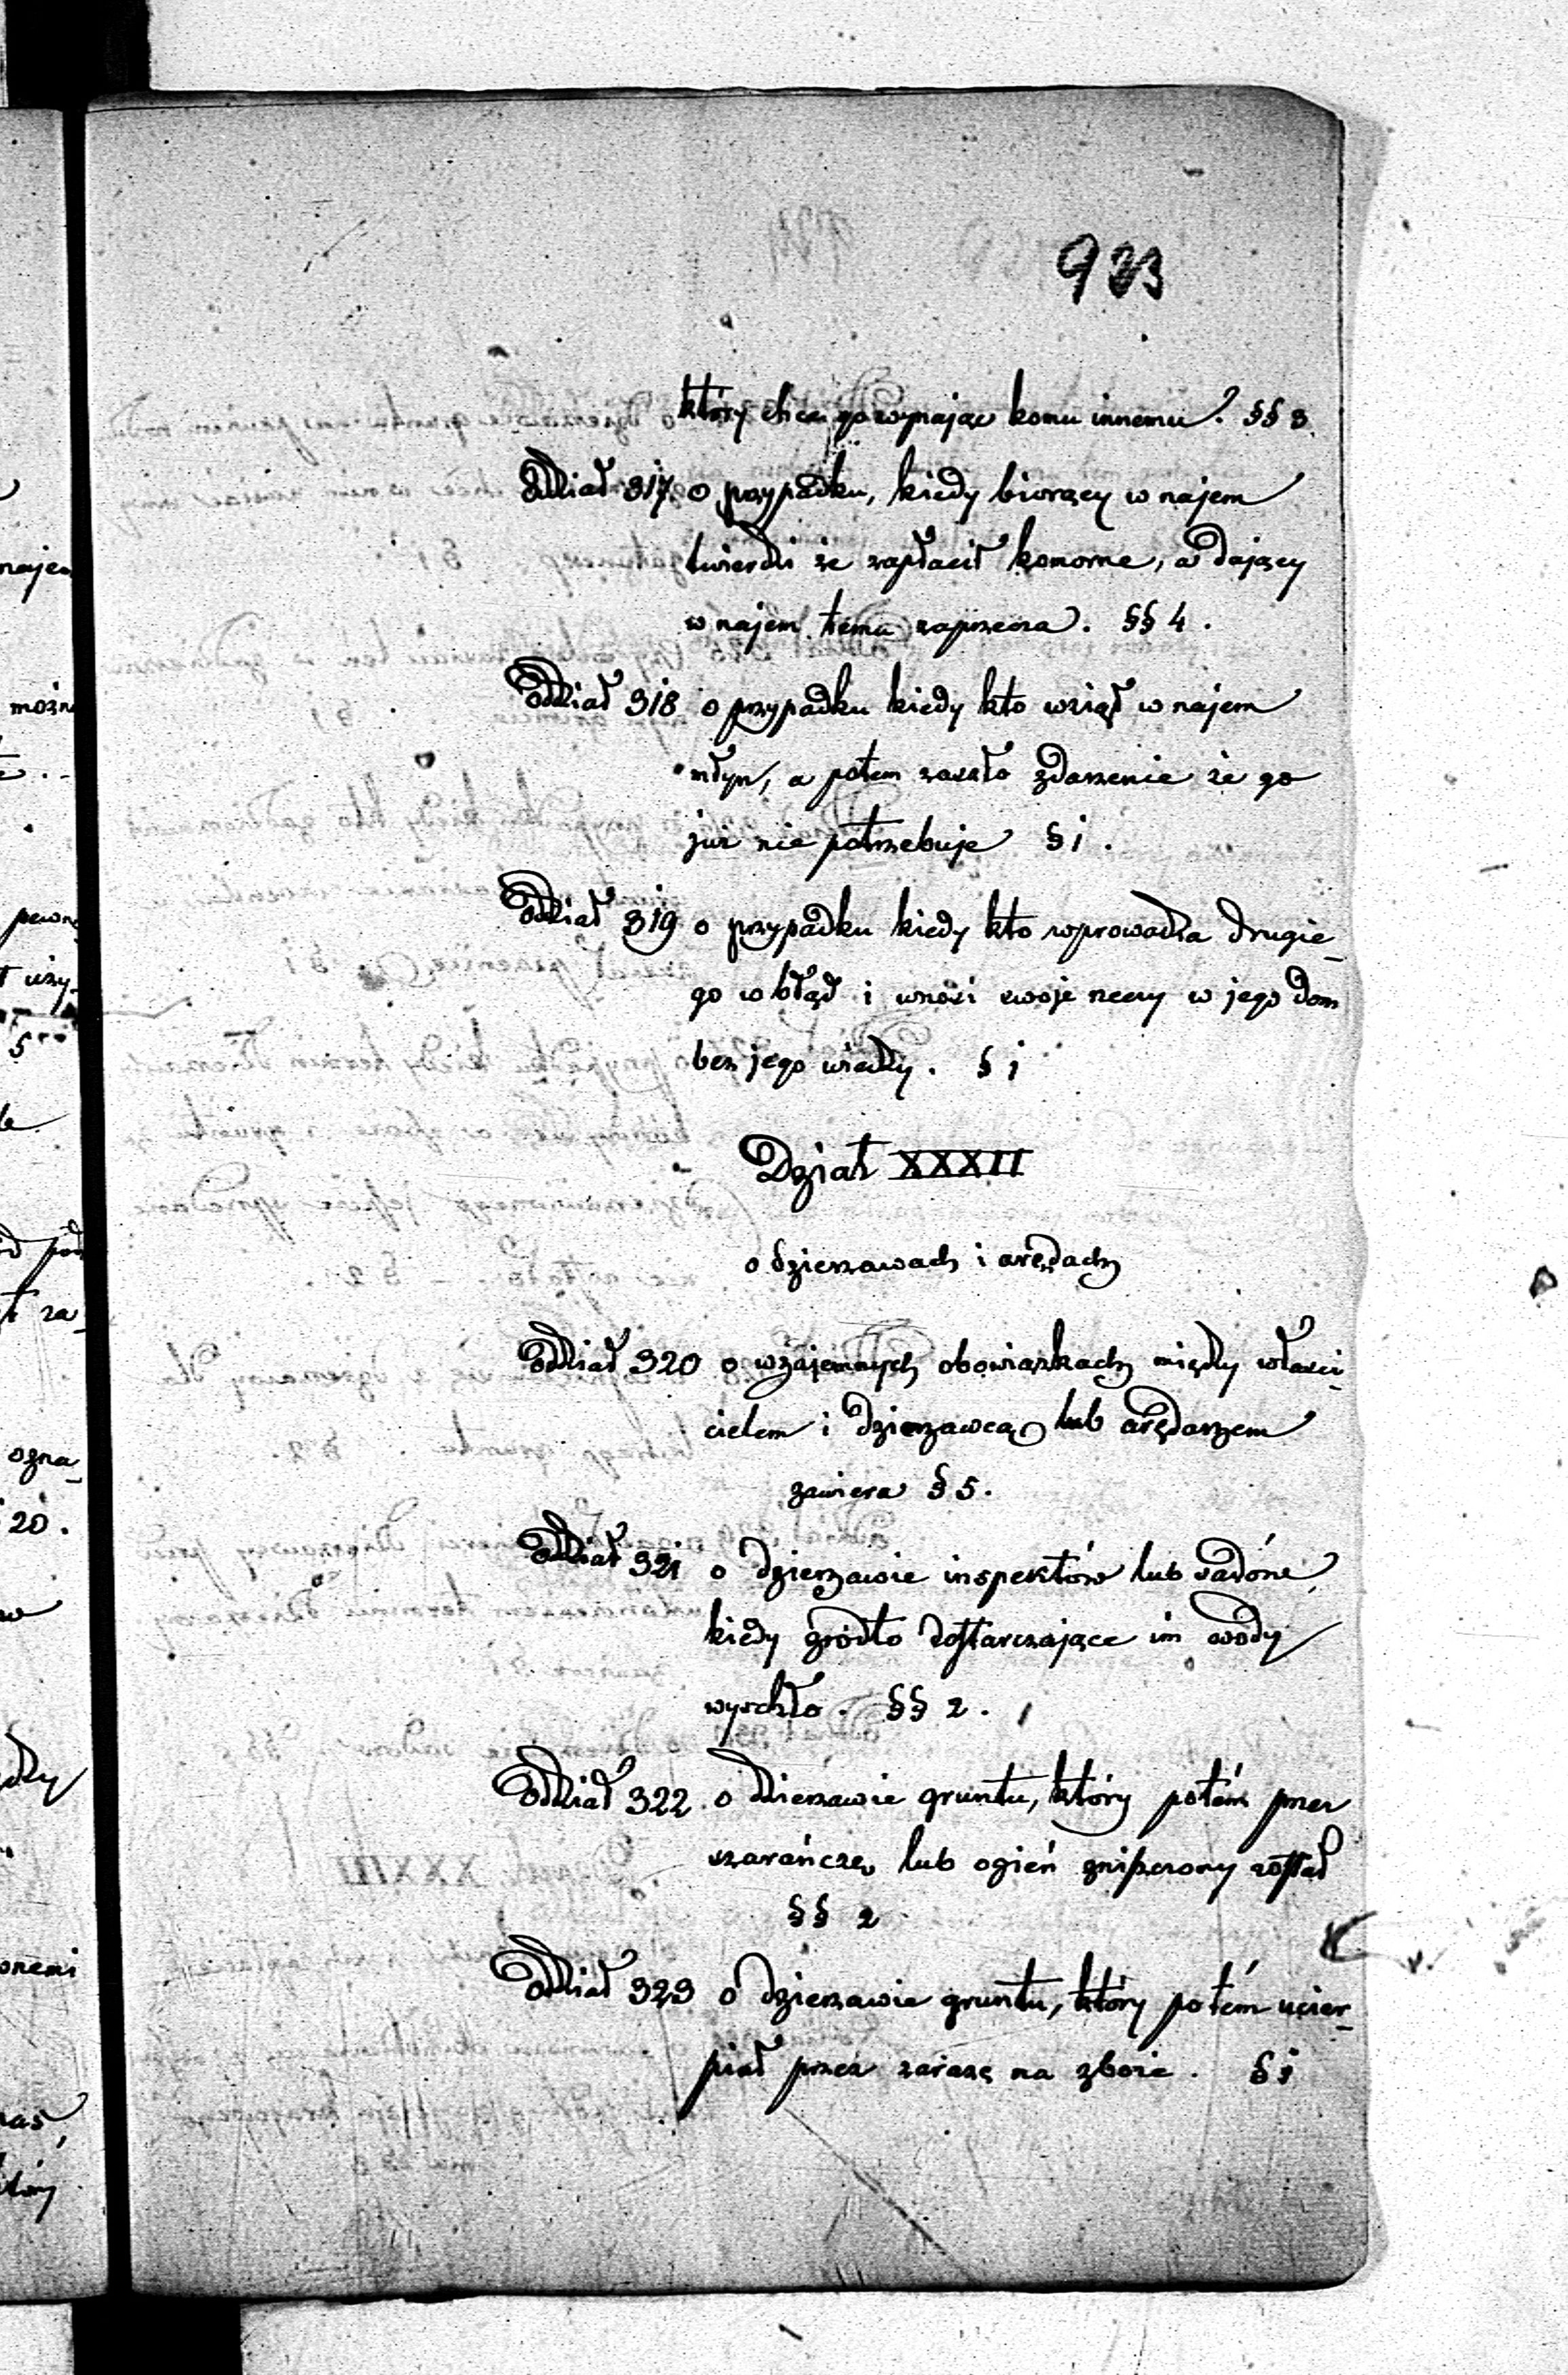 923
który chce go wynająć komu innemu. §§ 3.
Oddiał 317. o przypadku, kiedy biorący w najem
twierdzi że zapłacił komorne, a dający
w najem temu zaprzecza. §§ 4.
Oddział 318 o przypadku kiedy kto wziął w najem
młyn, a potem zaszło zdarzenie że go
już nie potrzebuje § 1.
Oddział 319 o przypadku kiedy kto wprowadza drugie-
go w błąd i wnosi swoje rzeczy w jego dom
bez jego wiedzy. § 1
Dział XXXII
o dzierżawach i arędach
Oddział 320 o wzajemnych obowiązkach między właści-
cielem i dzierżawcą lub arędarzem
zawiera § 5.
Oddział 321 o dzierżawie inspektów lub sadów,
kiedy źródło dostarczające im wody
wyschło. §§ 2.
Oddział 322. o dzierżawie gruntu, który potém przez
szarańczę lub ogień zniszczony został
§§ 2
Oddział 323 o dzierżawie gruntu, który potém ucier-
piał przez zarazę na zboże. § 1